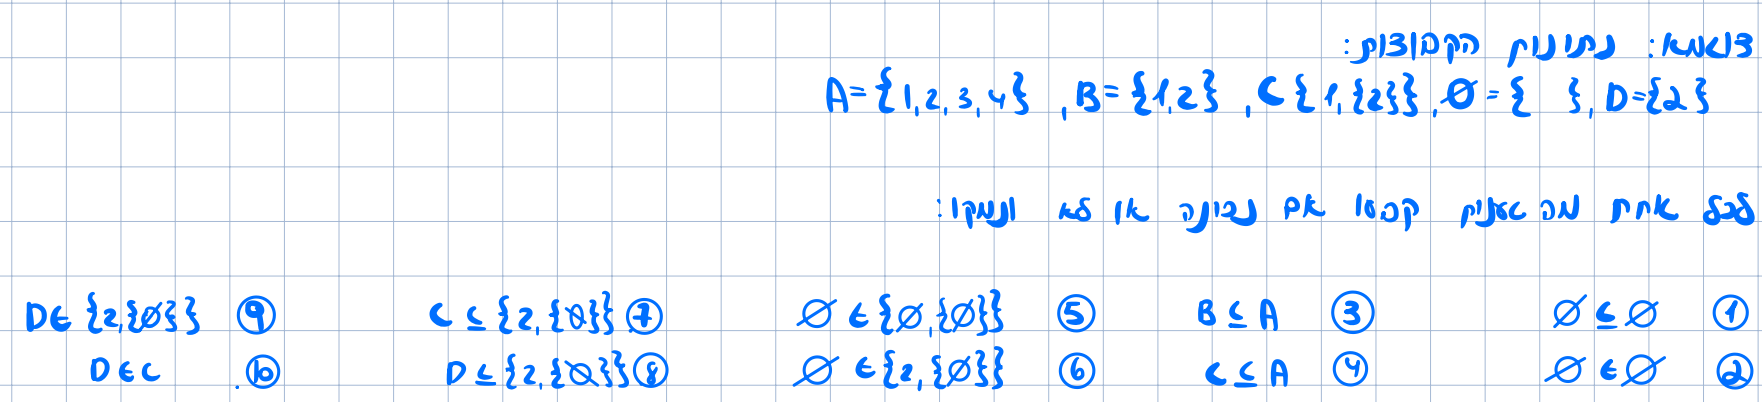 דוגמא: נתונות הקבוצות:
A={1,2,3,4} , B={1,2} , C{1,{2}}, ∅={ }, D={2}
לכל אחת מהטענות קבעו אם נכונה או לא ונמקו:
① ∅⊆∅ ③ B⊆A ⑤ ∅∈{∅,{∅}} ⑦ C⊆{2,{∅}} ⑨ D∈{2,{∅}}
② ∅∈∅ ④ C⊆A ⑥ ∅∈{2,{∅}} ⑧ D⊆{2,{∅}} ⑩. D∈C